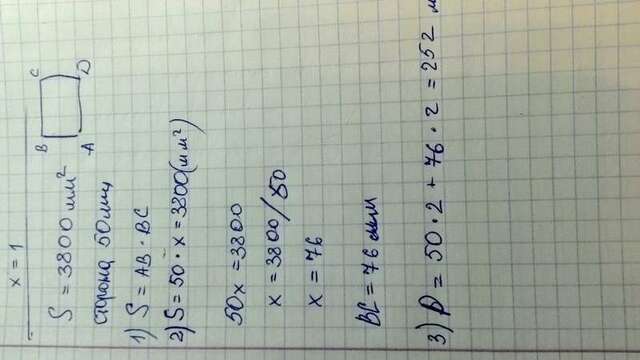 x = 1
S = 3800 мм²
B C
A D
сторона 50мм
1) S = AB · BC
2) S = 50 · x = 3800(мм²)
50x = 3800
x = 3800/50
x = 76
BC = 76 мм
3) P = 50 · 2 + 76 · 2 = 252 м